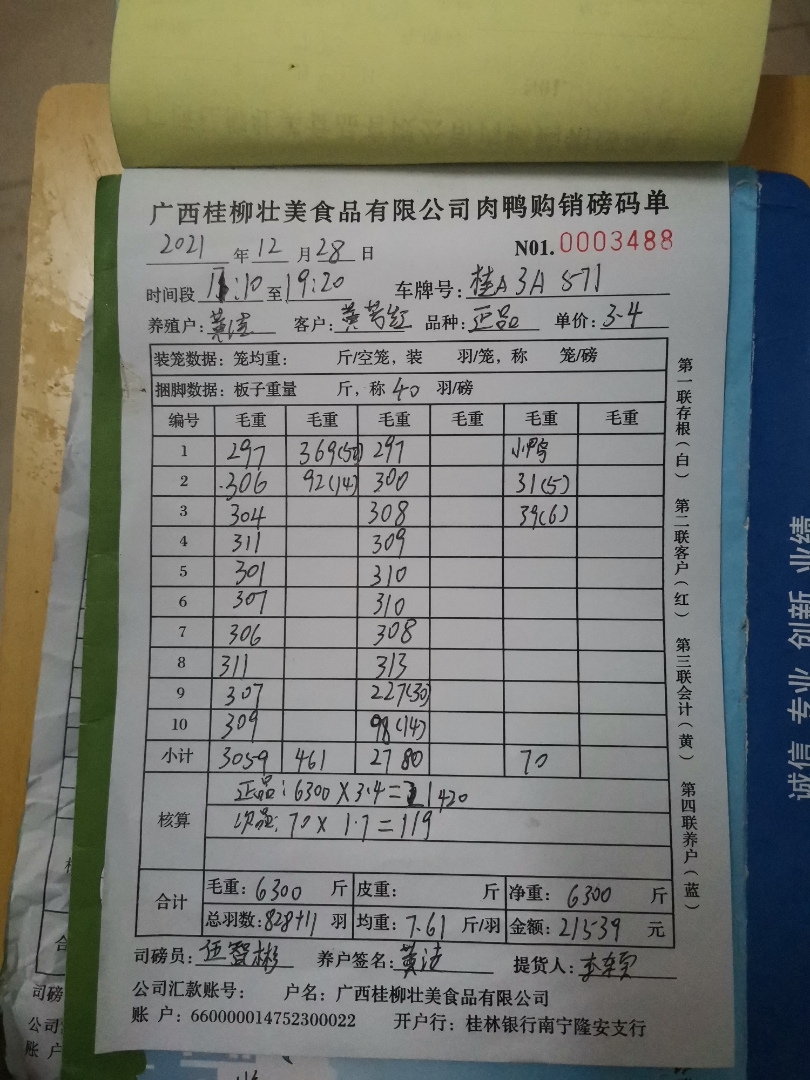 广西桂柳壮美食品有限公司肉鸭购销磅码单
2021年12月28日 N01.0003488
时间段 :10至19:20 车牌号:桂A3A571
养殖户:黄 客户:黄 品种:正品 单价:3.4
装笼数据:笼均重: 斤/空笼,装 羽/笼,称 笼/磅
捆脚数据:板子重量 斤,称40羽/磅
编号 毛重 毛重 毛重 毛重 毛重 毛重
1 297 369(50) 297 小鸭
2 306 92(14) 300 31(5)
3 304 308 39(6)
4 311 309
5 301 310
6 307 310
7 306 308
8 311 313
9 307 227(30)
10 309 98(14)
小计 3059 461 2780 70
核算
正品:6300×3.4=21420
次品:70×1.7=119
合计
毛重:6300斤 皮重: 斤 净重:6300斤
总羽数:828+11羽 均重:7.61斤/羽 金额:21539元
司磅员: 养户签名:黄 提货人:
公司汇款账号: 户名:广西桂柳壮美食品有限公司
账 户:660000014752300022 开户行:桂林银行南宁隆安支行
第一联存根(白) 第二联客户(红) 第三联会计(黄) 第四联养户(蓝)
诚信 专业 创新 业绩
合
司磅
公司
账 户